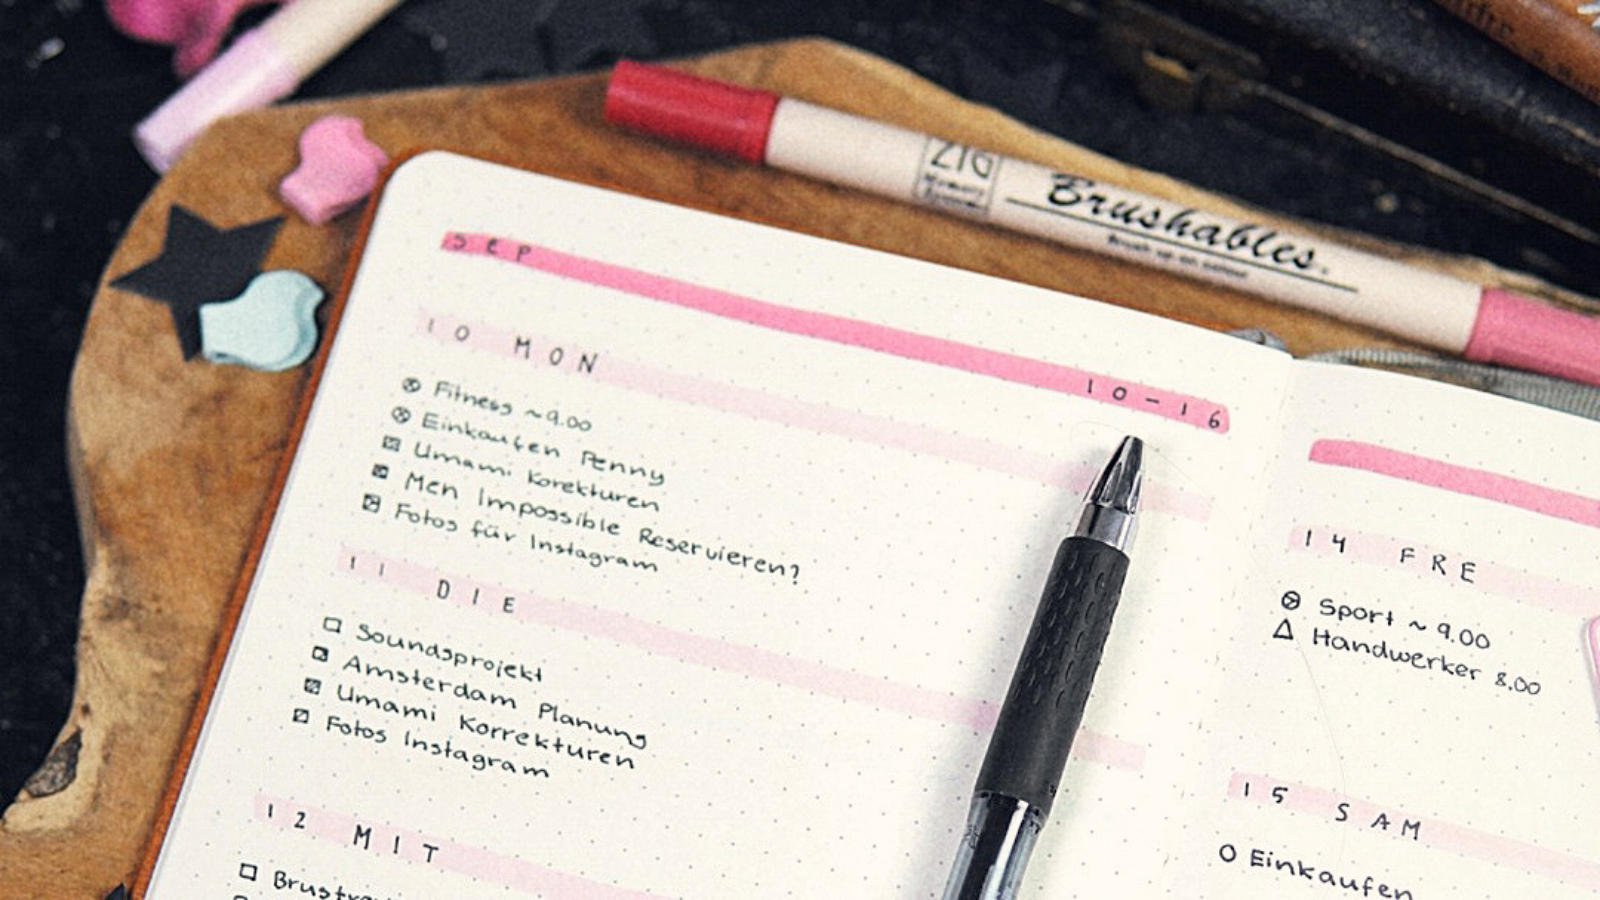 ZIG
Brushables.
SEP
10-16
10 MON
Fitness ~9.00
Einkaufen Penny
Umami Korekturen
Men Impossible Reservieren?
Fotos für Instagram
11 DIE
Soundsprojekt
Amsterdam Planung
Umami Korrekturen
Fotos Instagram
12 MIT
14 FRE
Sport ~ 9.00
Handwerker 8.00
15 SAM
Einkaufen